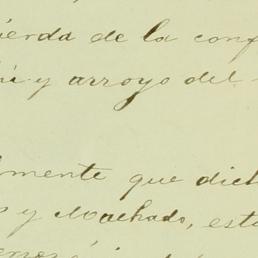 ierda de la conf
y arroyo del
mente que dich
y Machado, esta